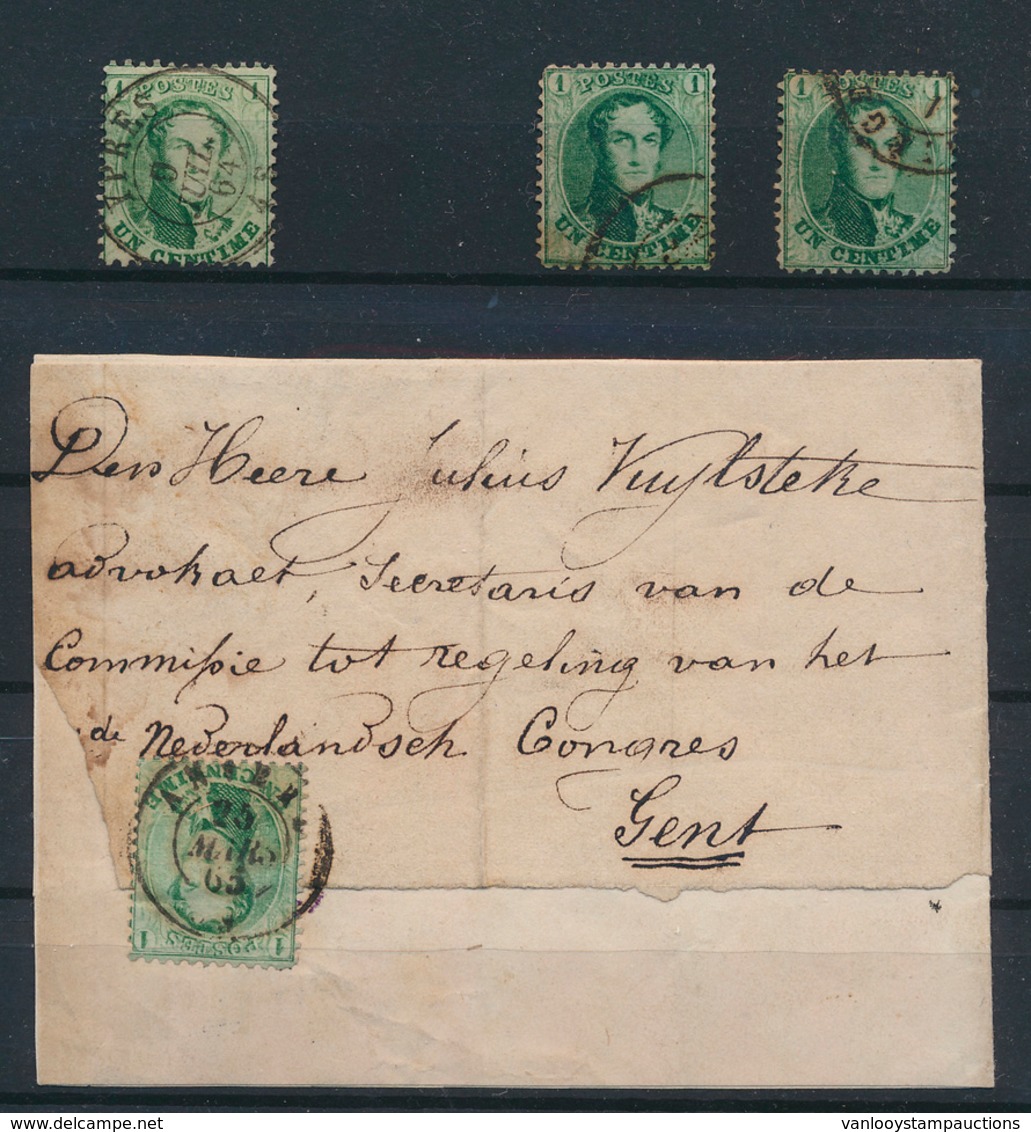 1 POSTES 1
YPRES
9
JUIL.
64
UN CENTIME
1 POSTES 1
UN CENTIME
1 POSTES 1
UN CENTIME
Den Heere Julius Vuylsteke
advokaet, Secretaris van de
Commissie tot regeling van het
de Nederlandsch Congres
Gent
UN CENTIME
ANVERS
MARS
65
1 POSTES 1
delcampe.net
vanlooystampauctions